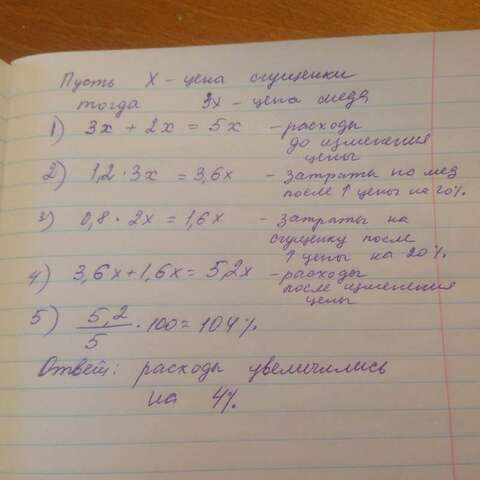 Пусть х - цена сгущенки
тогда 3х - цена меда
1) 3х + 2х = 5х - расходы
до изменения
цены
2) 1,2 · 3х = 3,6х - затраты по мед
после ↑ цены на 20%.
3) 0,8 · 2х = 1,6х - затраты на
сгущенку после
↑ цены на 20%.
4) 3,6х + 1,6х = 5,2х - расходы
после изменения
цены
5) 5,2/5 · 100 = 104%
Ответ: расходы увеличились
на 4%